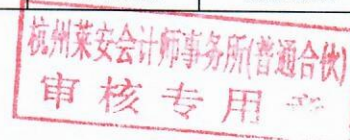 杭州莱安会计师事务所(普通合伙)
审核专用章